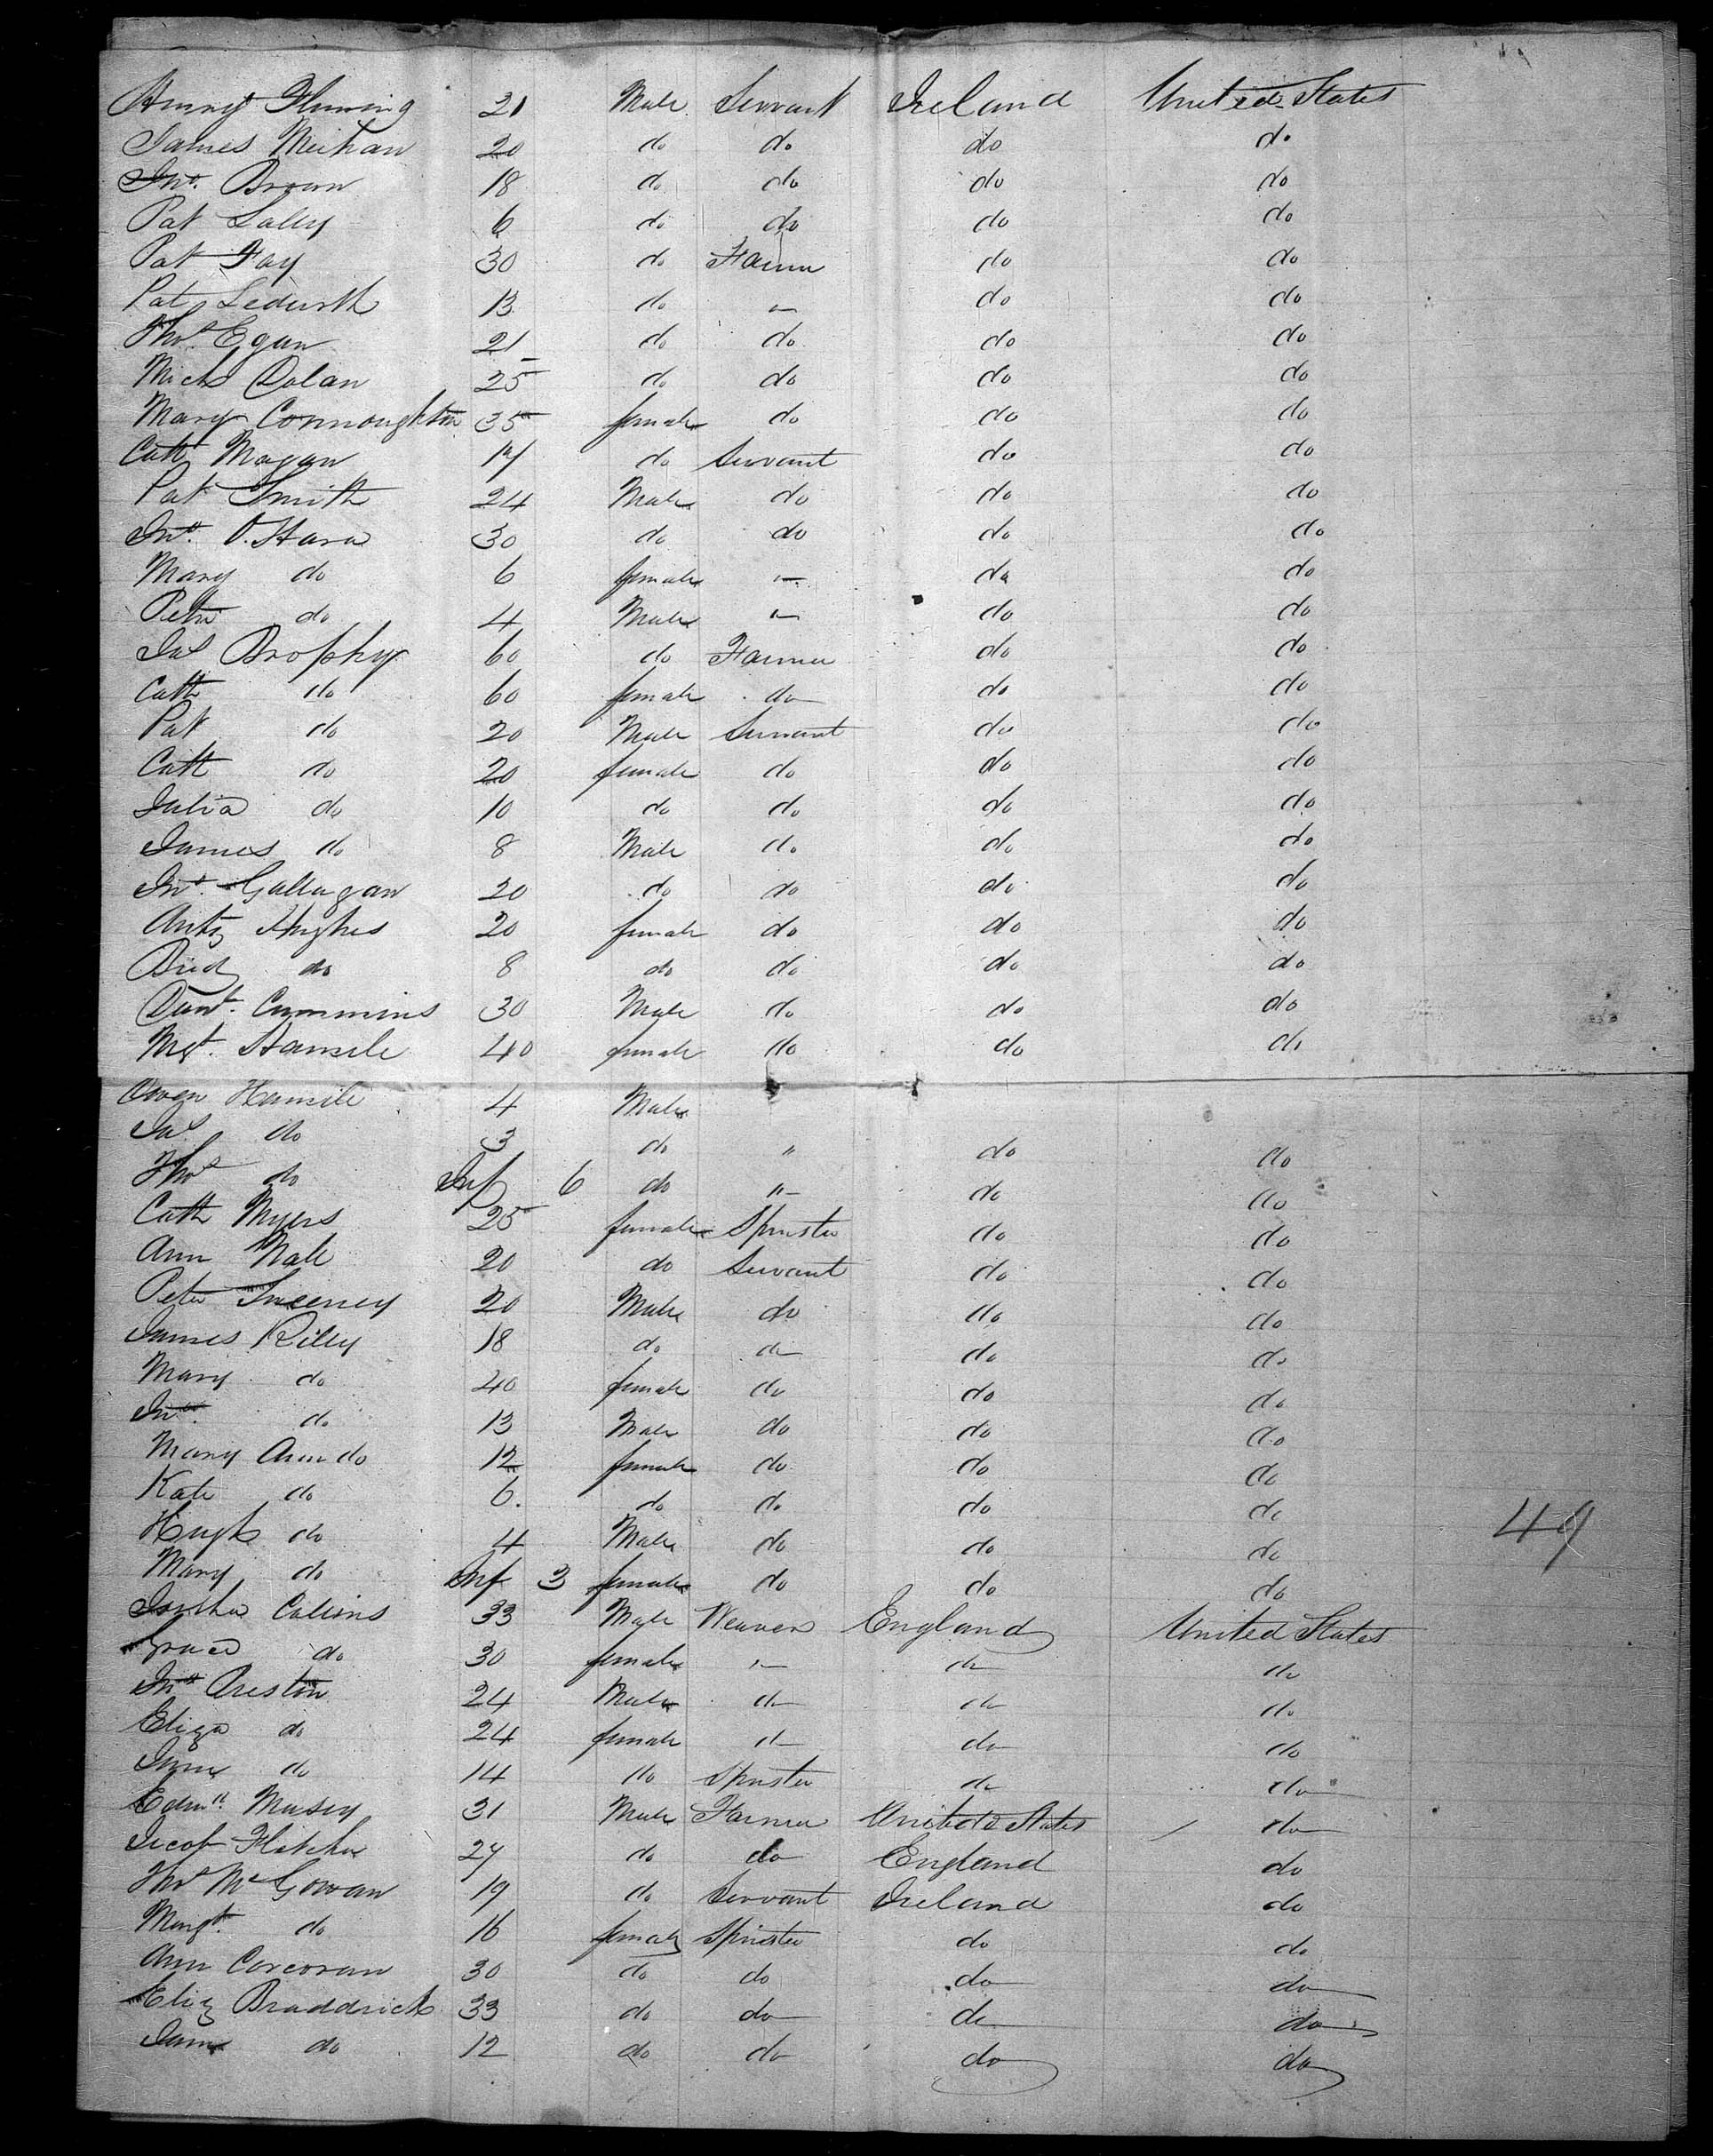 Henry Fleming 21 Male Servant Ireland United States
James Meehan 20 do do do do
Jno. Brown 18 do do do do
Pat Lally 6 do do do do
Pat Fay 30 do Farmer do do
Pat Ledwith 13 do " do do
Thos Egan 21 do do do do
Michl Dolan 25 do do do do
Mary Connoughton 35 female do do do
Cath Magan 17 do Servant do do
Pat Smith 24 Male do do do
Jno. O.Hara 30 do do do do
Mary do 6 female " do do
Peter do 4 Male " do do
Jas Brophy 60 do Farmer do do
Cath do 60 female do do do
Pat do 20 Male Servant do do
Cath do 20 female do do do
Julia do 10 do do do do
James do 8 Male do do do
Jno. Gallagan 20 do do do do
Anty Hughes 20 female do do do
Bridy do 8 do do do do
Cummins 30 Male do do do
Mgt. Hamile 40 female do do do
Owen Hamile 4 Male
Jas do 3 do " do do
Thos do Inf 6 do " do do
Cath Myers 25 female Spinster do do
Ann Nale 20 do Servant do do
Peter Sweeney 20 Male do do do
James Riley 18 do do do do
Mary do 40 female do do do
Jno. do 13 Male do do do
Mary Ann do 12 female do do do
Kate do 6. do do do do
Hugh do 4 Male do do do
49
Mary do Inf 3 female do do do
Collins 33 Male Weaver England United States
Grace do 30 female " do do
Jno Preston 24 Male do do do
Eliza do 24 female do do do
Jane do 14 do Spinster do do
Edwd. Musey 31 Male Farmer United States do
Jacob Fletcher 27 do do England do
Thos McGowan 19 do Servant Ireland do
Margt. do 16 female Spinster do do
Ann Corcoran 30 do do do do
Eliz Braddrick 33 do do do do
Jane do 12 do do do do